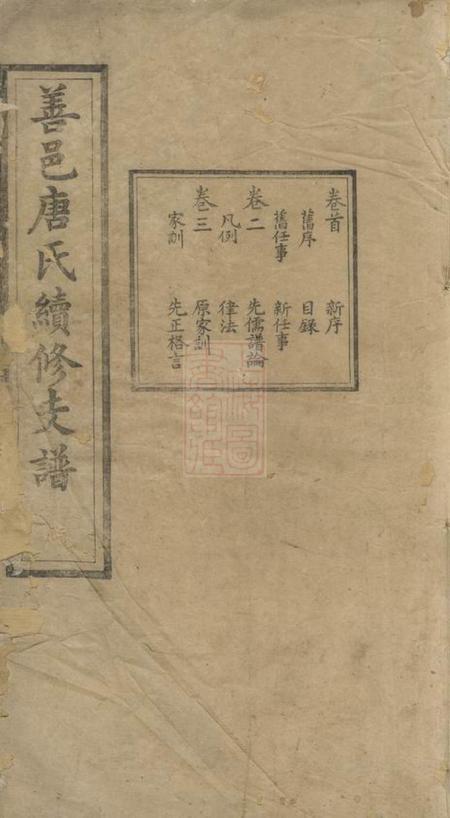 善邑唐氏續修支譜
卷首 新序
舊序 目錄
舊任事 新任事
卷二 先儒譜論
凡例 律法
卷三 原家訓
家訓 先正格言